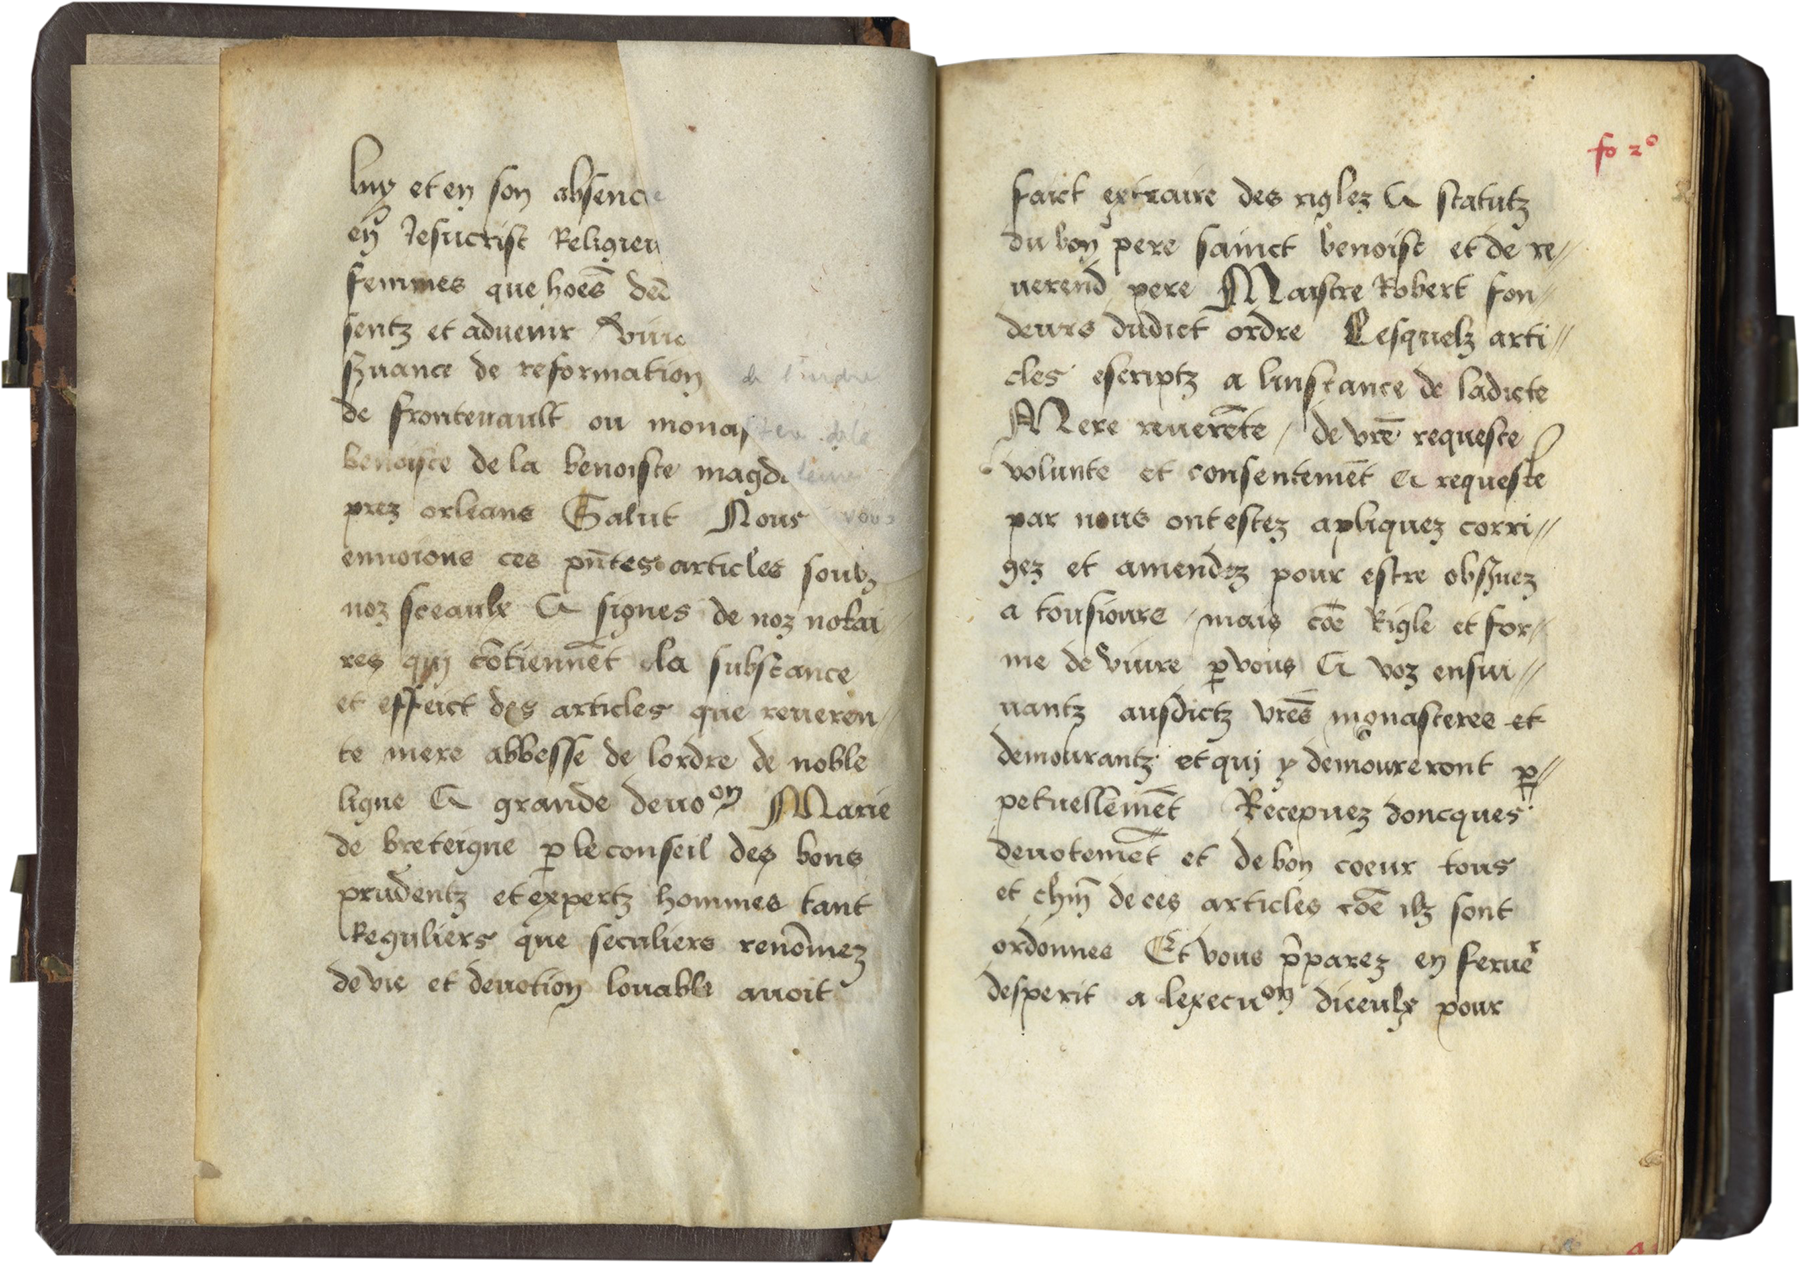 luy et en son absence
en Jesucrist Religieu
femmes que hoēs de
sentz et advenir vivre
de reformation de lordre
de frontevault ou monastere de la
benoiste de la benoiste magdeleine
prez orleans Salut Nous vous
envoions ces pn̄tes articles soubz
noz sceaulx & signes de noz notai
res qui cōtiennēt la substance
et effect des articles que reveren
te mere abbesse de lordre de noble
ligne & grande devoon Marie
de breteigne p le conseil des bons
prudentz et expertz hommes tant
Reguliers que seculiers renōmez
de vie et devotion louable avoit
fo 2o
faict extraire des riglez & statutz
du bon pere sainct benoist et de re//
verend pere Maistre Robert fon//
deurs dudict ordre Lesquelz arti//
cles escriptz a linstance de ladicte
Mere reverēte / de vrē requeste
volunte et consentemēt & requeste
par nous ont estez apliquez corri//
gez et amendez pour estre obsvez
a tousiours / mais cōe Rigle et for//
me de vivre p vous & voz ensui//
vantz ausdictz vrēs monasteres et
demourantz et qui y demoureront p//
petuellemēt Recepvez doncques
devotemēt et de bon coeur tous
et chūn de ces articles cōe ilz sont
ordonnes Et vous p̄parez en ferver
desperit a lexecuon diceulx pour